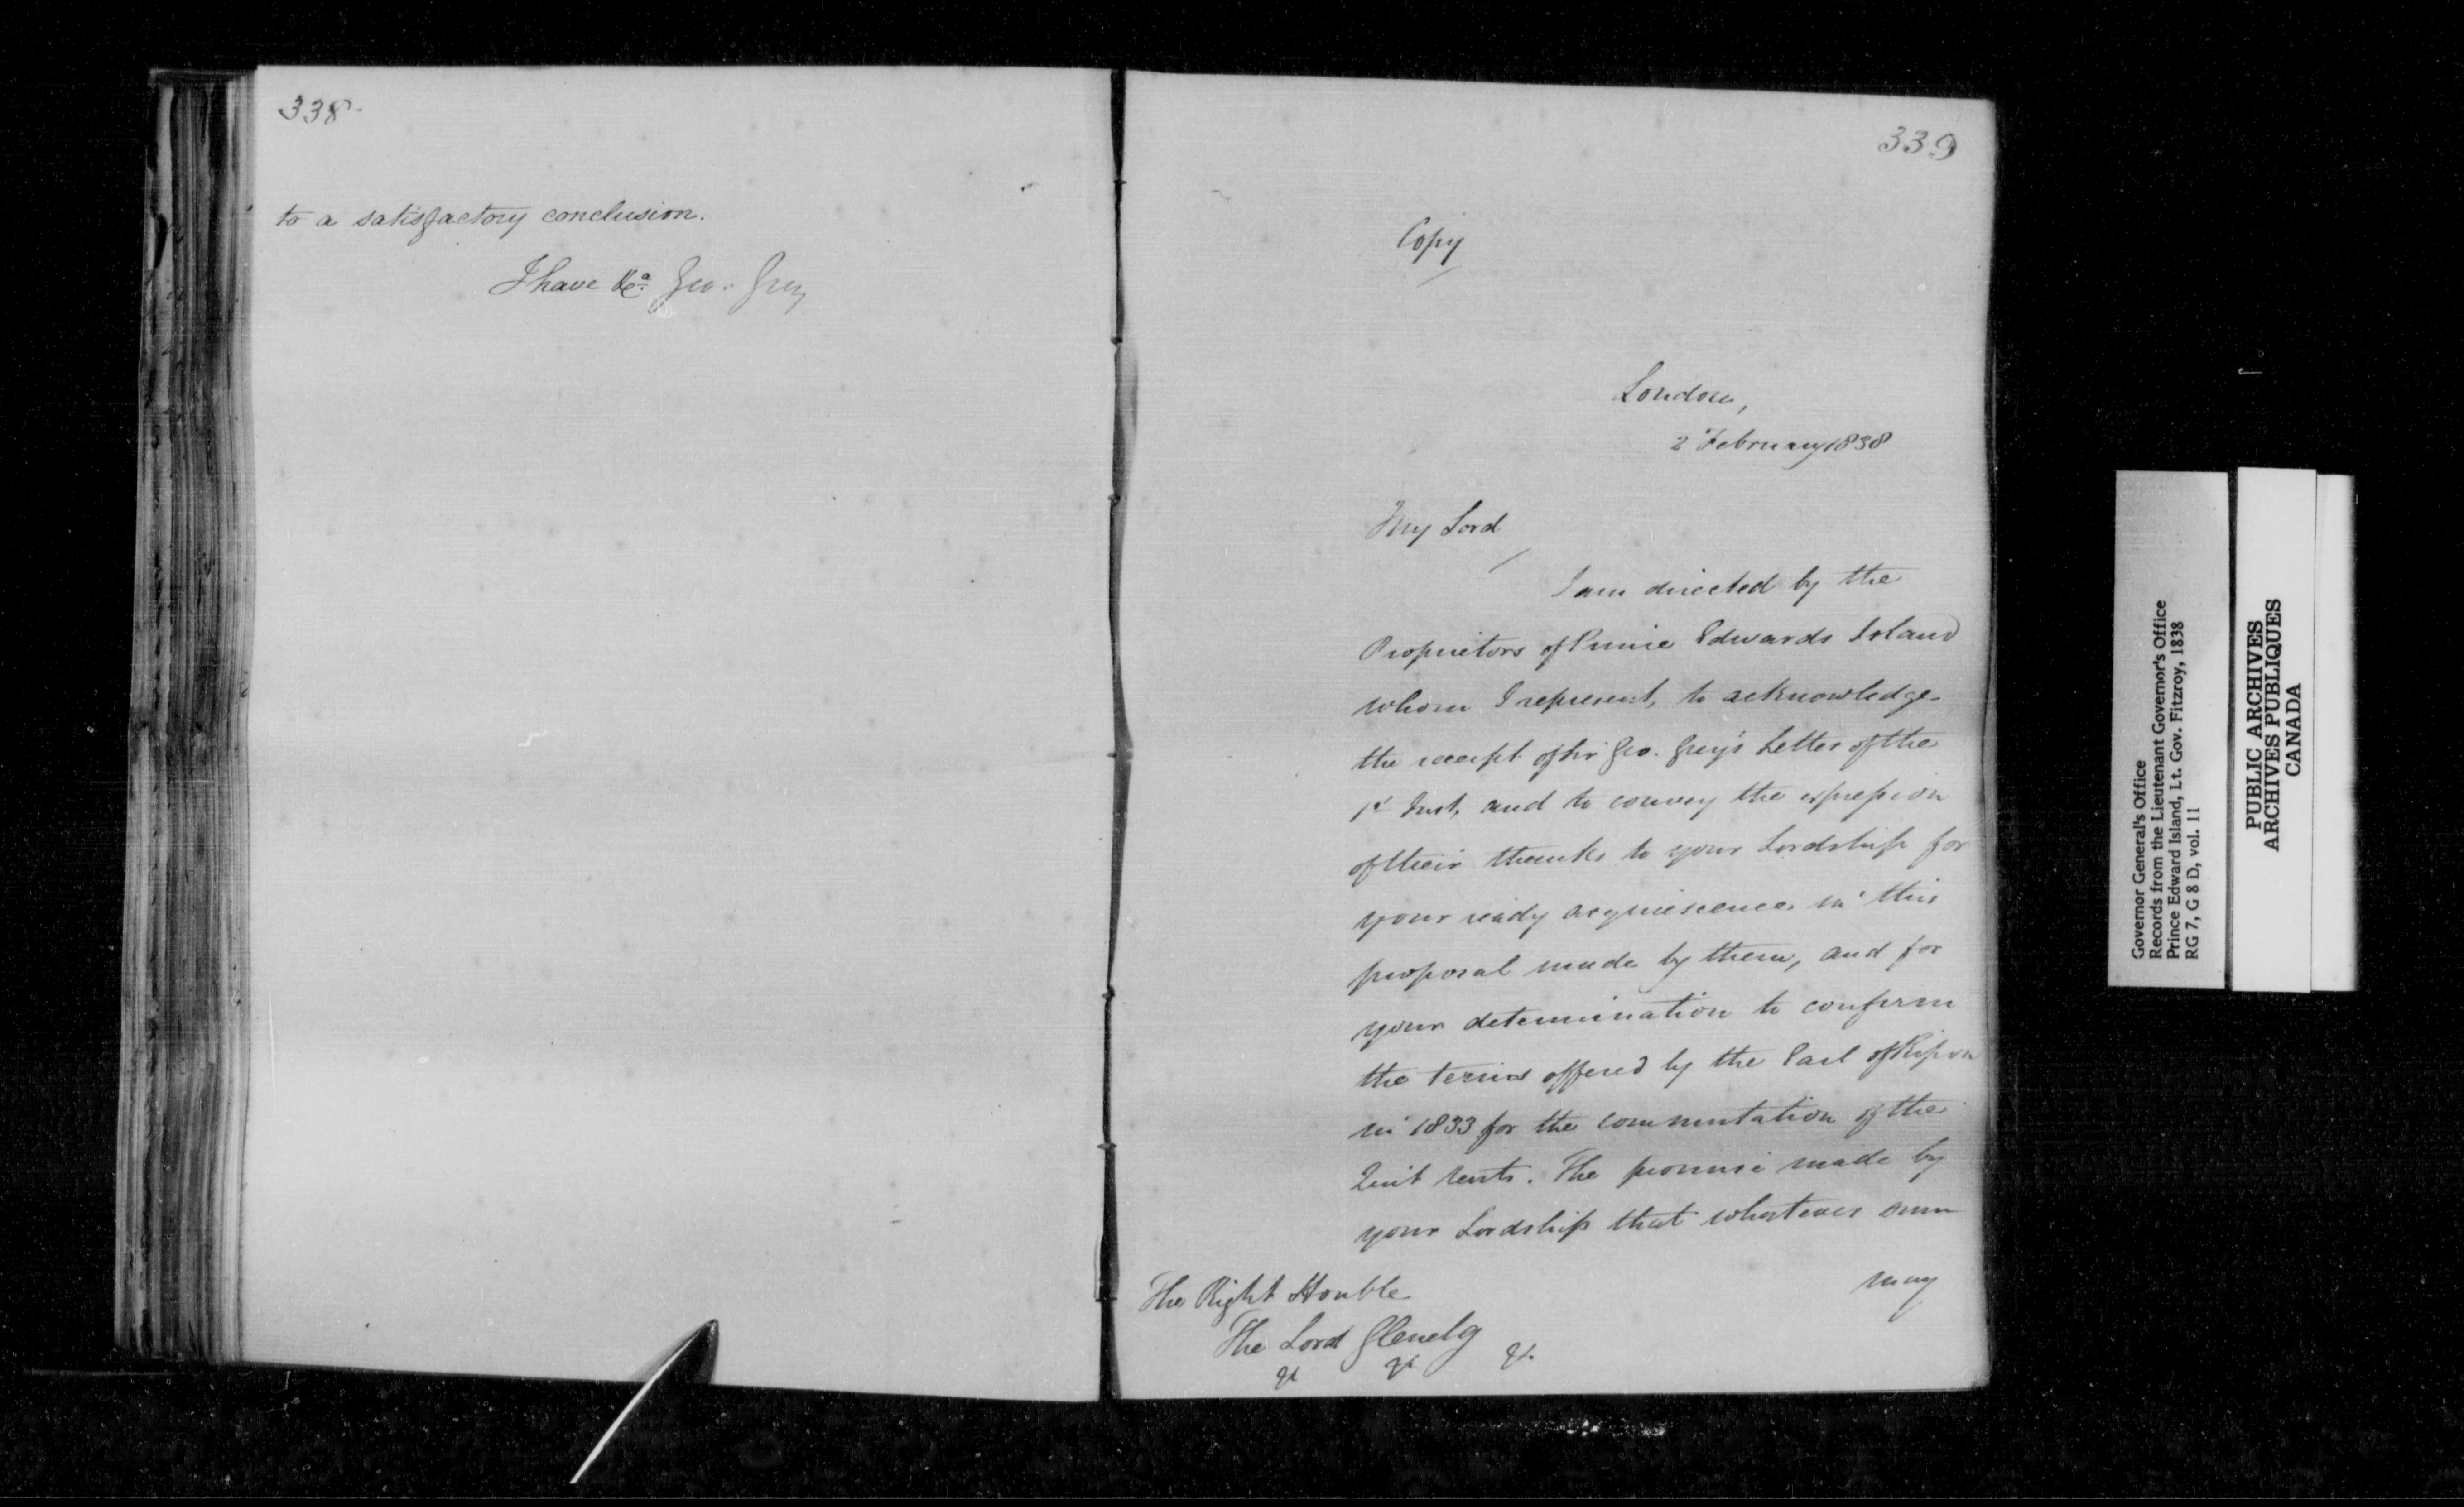 338
to a satisfactory conclusion.
I have &ca. Geo. Grey
339
Copy
London,
2 February 1838
My Lord
I am directed by the
Proprietors of Prince Edwards Island
whom I represent, to acknowledge
the receipt of Sir Geo. Grey's Letter of the
1st Inst, and to convey the expression
of their thanks to your Lordship for
your ready acquiescence in this
proposal made by them, and for
your determination to confirm
the terms offered by the Earl of Ripon
in 1833 for the commutation of the
Quit rents. The promise made by
your Lordship that whatever sum
may
The Right Honble
The Lord Glenelg
&c &c &c.
Governor General's Office
Records from the Lieutenant Governor's Office
Prince Edward Island, Lt. Gov. Fitzroy, 1838
RG 7, G 8 D, vol. 11
PUBLIC ARCHIVES
ARCHIVES PUBLIQUES
CANADA